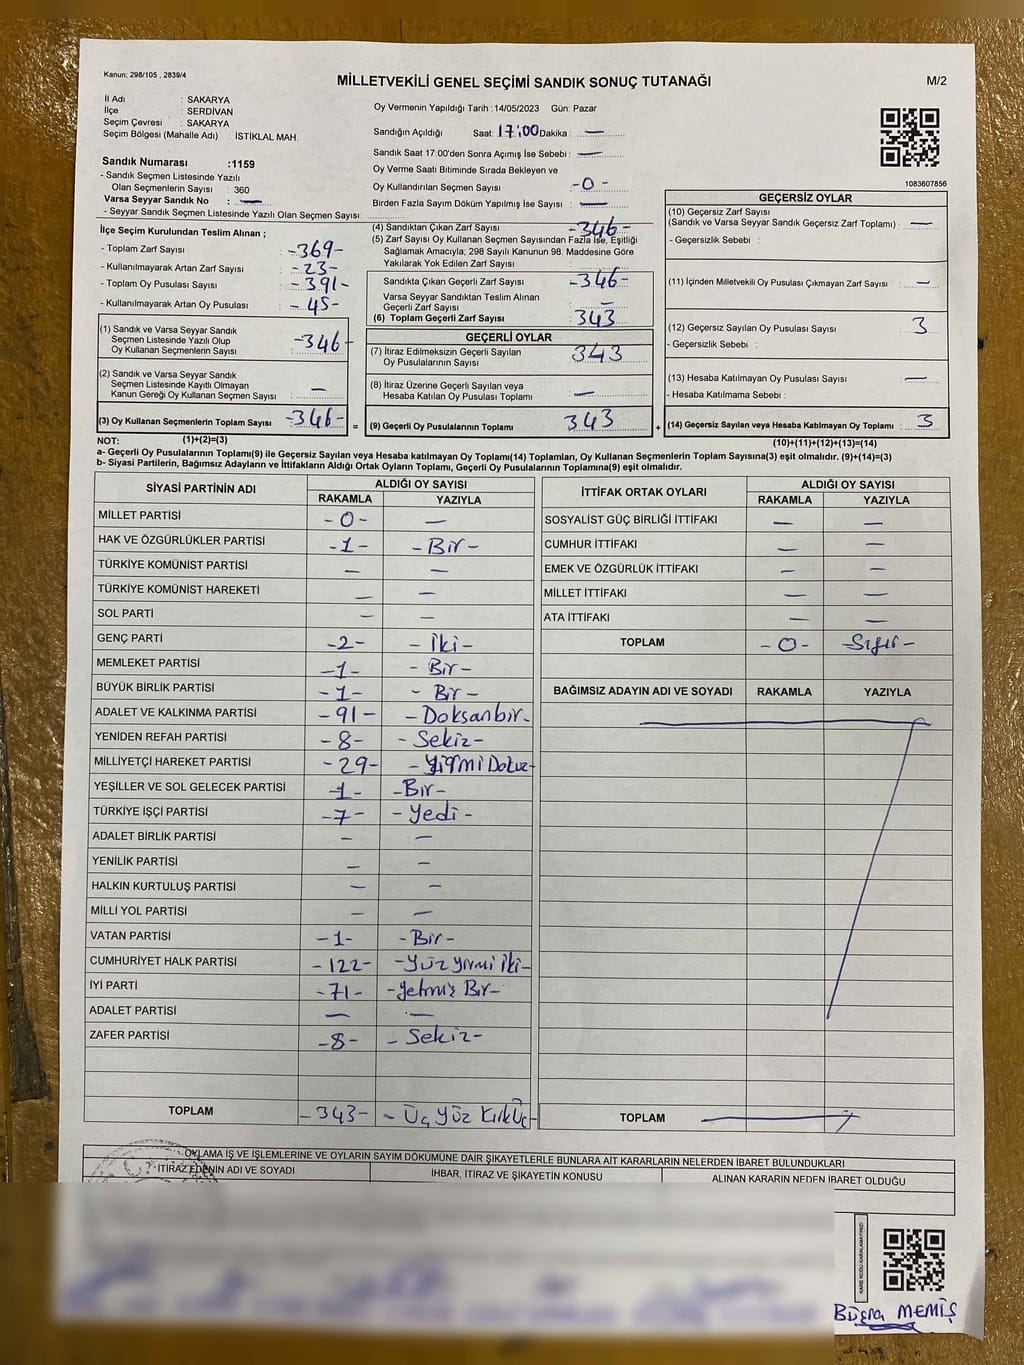 Kanun; 298/105 , 2839/4
MİLLETVEKİLİ GENEL SEÇİMİ SANDIK SONUÇ TUTANAĞI
M/2
İl Adı : SAKARYA
İlçe : SERDİVAN
Seçim Çevresi : SAKARYA
Seçim Bölgesi (Mahalle Adı) : İSTİKLAL MAH.
Sandık Numarası :1159
- Sandık Seçmen Listesinde Yazılı
Olan Seçmenlerin Sayısı : 360
Varsa Seyyar Sandık No : —
- Seyyar Sandık Seçmen Listesinde Yazılı Olan Seçmen Sayısı:
Oy Vermenin Yapıldığı Tarih :14/05/2023 Gün: Pazar
Sandığın Açıldığı Saat: 17:00 Dakika : —
Sandık Saat 17:00'den Sonra Açımış İse Sebebi : —
Oy Verme Saati Bitiminde Sırada Bekleyen ve
Oy Kullandırılan Seçmen Sayısı -0-
Birden Fazla Sayım Döküm Yapılmış İse Sayısı : —
1083607856
İlçe Seçim Kurulundan Teslim Alınan ;
- Toplam Zarf Sayısı : -369-
- Kullanılmayarak Artan Zarf Sayısı : -23-
- Toplam Oy Pusulası Sayısı : -391-
- Kullanılmayarak Artan Oy Pusulası : -45-
(1) Sandık ve Varsa Seyyar Sandık
Seçmen Listesinde Yazılı Olup
Oy Kullanan Seçmenlerin Sayısı : -346-
(2) Sandık ve Varsa Seyyar Sandık
Seçmen Listesinde Kayıtlı Olmayan
Kanun Gereği Oy Kullanan Seçmen Sayısı : —
(3) Oy Kullanan Seçmenlerin Toplam Sayısı : -346- =
(4) Sandıktan Çıkan Zarf Sayısı : -346-
(5) Zarf Sayısı Oy Kullanan Seçmen Sayısından Fazla İse, Eşitliği
Sağlamak Amacıyla; 298 Sayılı Kanunun 98. Maddesine Göre
Yakılarak Yok Edilen Zarf Sayısı :
Sandıkta Çıkan Geçerli Zarf Sayısı : -346-
Varsa Seyyar Sandıktan Teslim Alınan
Geçerli Zarf Sayısı : —
(6) Toplam Geçerli Zarf Sayısı : 343
GEÇERLİ OYLAR
(7) İtiraz Edilmeksizin Geçerli Sayılan
Oy Pusulalarının Sayısı : 343
(8) İtiraz Üzerine Geçerli Sayılan veya
Hesaba Katılan Oy Pusulası Toplamı : —
(9) Geçerli Oy Pusulalarının Toplamı : 343 +
GEÇERSİZ OYLAR
(10) Geçersiz Zarf Sayısı
(Sandık ve Varsa Seyyar Sandık Geçersiz Zarf Toplamı) : —
- Geçersizlik Sebebi :
(11) İçinden Milletvekili Oy Pusulası Çıkmayan Zarf Sayısı : —
(12) Geçersiz Sayılan Oy Pusulası Sayısı : 3
- Geçersizlik Sebebi :
(13) Hesaba Katılmayan Oy Pusulası Sayısı : —
- Hesaba Katılmama Sebebi :
(14) Geçersiz Sayılan veya Hesaba Katılmayan Oy Toplamı : 3
NOT: (1)+(2)=(3)
(10)+(11)+(12)+(13)=(14)
a- Geçerli Oy Pusulalarının Toplamı(9) ile Geçersiz Sayılan veya Hesaba katılmayan Oy Toplamı(14) Toplamları, Oy Kullanan Seçmenlerin Toplam Sayısına(3) eşit olmalıdır. (9)+(14)=(3)
b- Siyasi Partilerin, Bağımsız Adayların ve İttifakların Aldığı Ortak Oyların Toplamı, Geçerli Oy Pusulalarının Toplamına(9) eşit olmalıdır.
SİYASİ PARTİNİN ADI ALDIĞI OY SAYISI
RAKAMLA YAZIYLA
MİLLET PARTİSİ -0- —
HAK VE ÖZGÜRLÜKLER PARTİSİ -1- -Bir-
TÜRKİYE KOMÜNİST PARTİSİ — —
TÜRKİYE KOMÜNİST HAREKETİ — —
SOL PARTİ — —
GENÇ PARTİ -2- -İki-
MEMLEKET PARTİSİ -1- -Bir-
BÜYÜK BİRLİK PARTİSİ -1- -Bir-
ADALET VE KALKINMA PARTİSİ -91- -Doksanbir-
YENİDEN REFAH PARTİSİ -8- -Sekiz-
MİLLİYETÇİ HAREKET PARTİSİ -29- -Yirmi Dokuz-
YEŞİLLER VE SOL GELECEK PARTİSİ -1- -Bir-
TÜRKİYE İŞÇİ PARTİSİ -7- -Yedi-
ADALET BİRLİK PARTİSİ — —
YENİLİK PARTİSİ — —
HALKIN KURTULUŞ PARTİSİ — —
MİLLİ YOL PARTİSİ — —
VATAN PARTİSİ -1- -Bir-
CUMHURİYET HALK PARTİSİ -122- -Yüz yirmi iki-
İYİ PARTİ -71- -Yetmiş Bir-
ADALET PARTİSİ — —
ZAFER PARTİSİ -8- -Sekiz-
TOPLAM -343- -Üç Yüz Kırk Üç-
İTTİFAK ORTAK OYLARI ALDIĞI OY SAYISI
RAKAMLA YAZIYLA
SOSYALİST GÜÇ BİRLİĞİ İTTİFAKI — —
CUMHUR İTTİFAKI — —
EMEK VE ÖZGÜRLÜK İTTİFAKI — —
MİLLET İTTİFAKI — —
ATA İTTİFAKI — —
TOPLAM -0- -Sıfır-
BAĞIMSIZ ADAYIN ADI VE SOYADI RAKAMLA YAZIYLA
TOPLAM
OYLAMA İŞ VE İŞLEMLERİNE VE OYLARIN SAYIM DÖKÜMÜNE DAİR ŞİKAYETLERLE BUNLARA AİT KARARLARIN NELERDEN İBARET BULUNDUKLARI
İTİRAZ EDENİN ADI VE SOYADI İHBAR, İTİRAZ VE ŞİKAYETİN KONUSU ALINAN KARARIN NEDEN İBARET OLDUĞU
KARE KODU KARALAMAYINIZ!
Büşra MEMİŞ